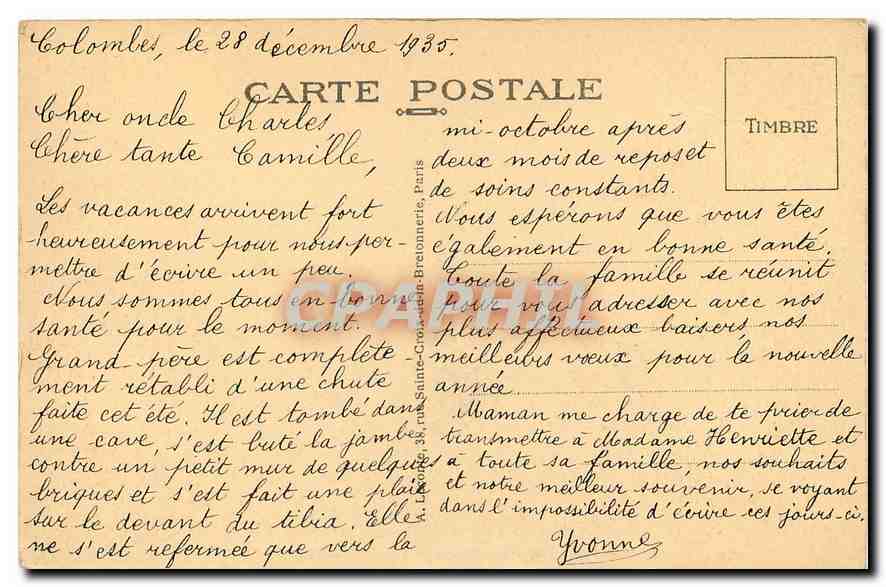 Colombes, le 28 décembre 1935.
CARTE POSTALE
TIMBRE
Cher oncle Charles
Chère tante Camille,
Les vacances arrivent fort
heureusement pour nous per-
mettre d'écrire un peu.
Nous sommes tous en bonne
santé pour le moment.
Grand-père est complète-
ment rétabli d'une chute
faite cet été. Il est tombé dans
une cave, s'est buté la jambe
contre un petit mur de quelques
briques et s'est fait une plaie
sur le devant du tibia. Elle
ne s'est refermée que vers la
A. 38, rue Sainte-Croix-de-la-Bretonnerie, Paris
mi-octobre après
deux mois de repos et
de soins constants.
Nous espérons que vous êtes
également en bonne santé.
Toute la famille se réunit
pour vous adresser avec nos
plus affectueux baisers nos
meilleurs vœux pour la nouvelle
année
Maman me charge de te prier de
transmettre à Madame Henriette et
à toute sa famille, nos souhaits
et notre meilleur souvenir, se voyant
dans l'impossibilité d'écrire ces jours-ci.
Yvonne
CPARHIL